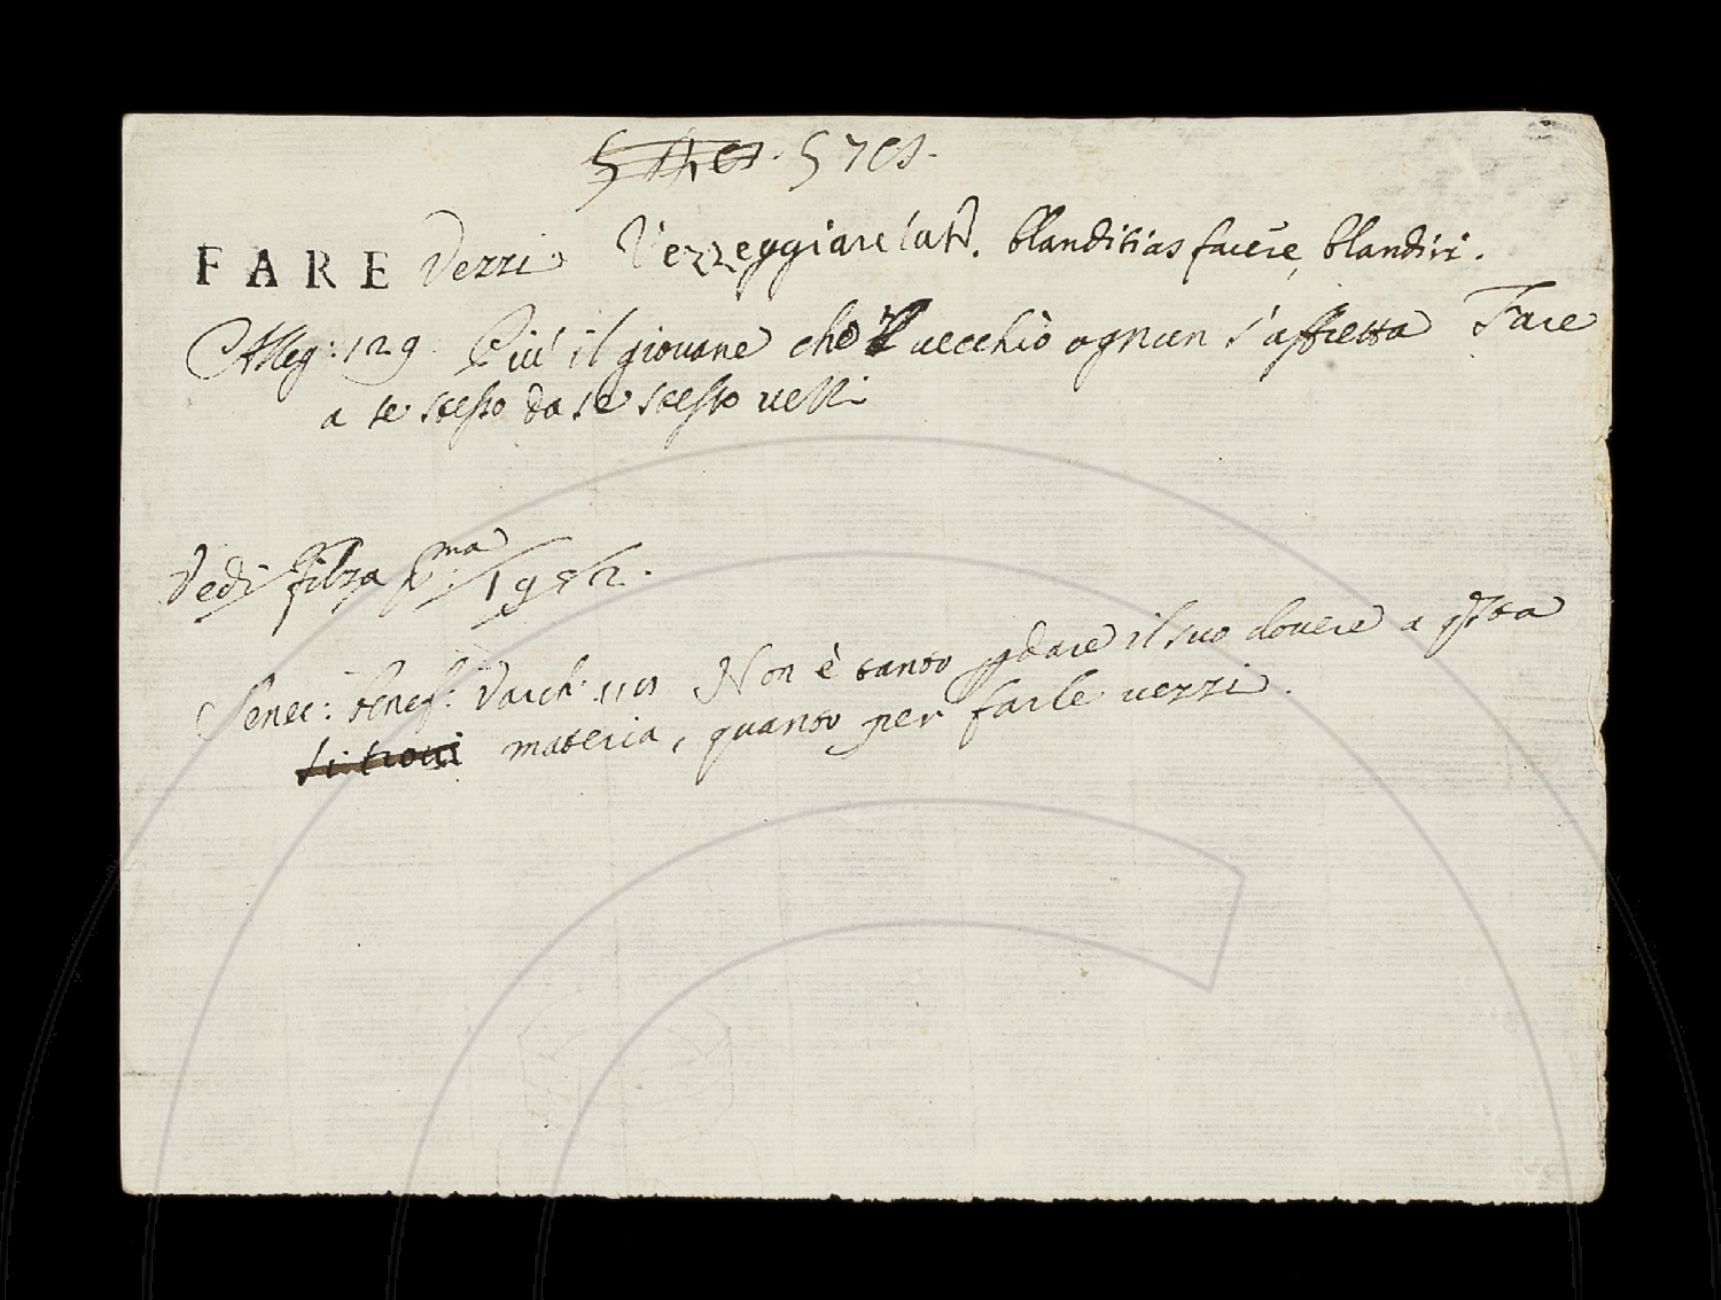 § 768.
FARE vezzi Vezzeggiare lat. blanditias facere, blandiri.
Alleg: 129 Più il giovane che 'l vecchio ognun s'affretta Fare
a se stesso da se stesso vezzi
Vedi filza P:ma 1952.
Senec: benef: Varch: Non è tanto p dare il suo dovere a qsta
si trovi materia, quanto per farle vezzi.